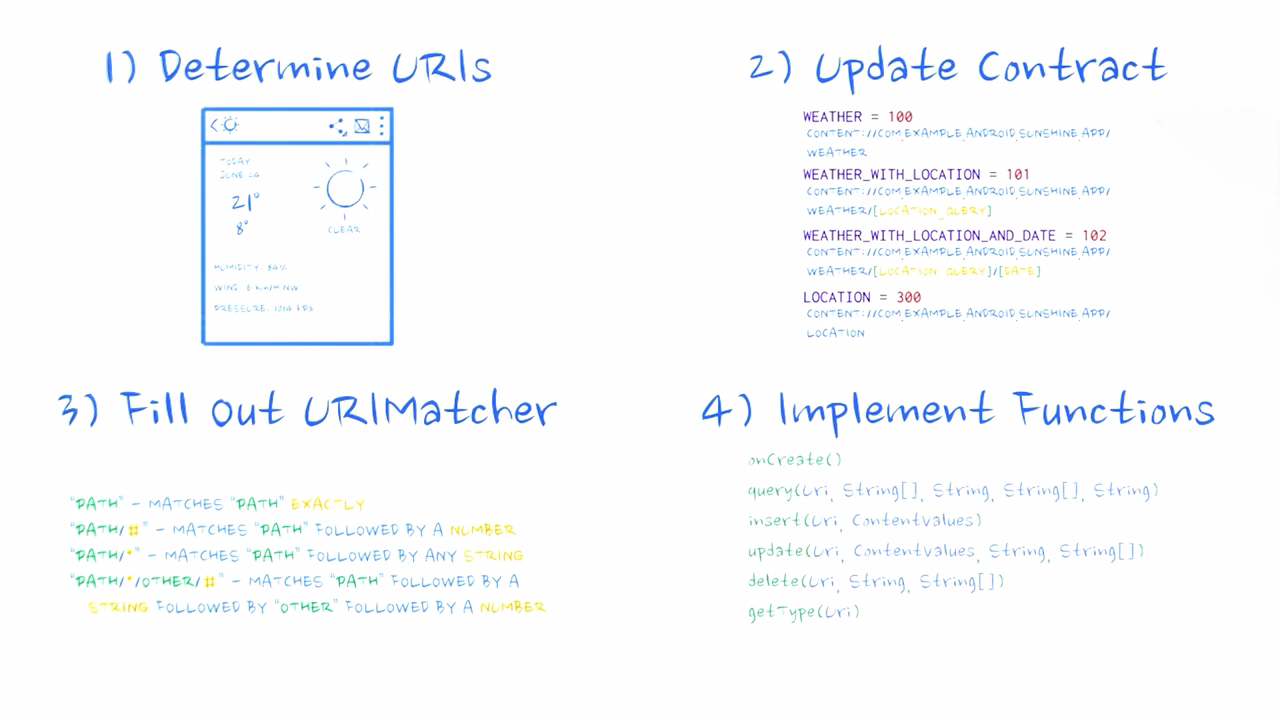 1) Determine URIs
TODAY
JUNE 24
21°
8°
CLEAR
HUMIDITY: 84%
WIND: 6 KM/H NW
PRESSURE: 1014 kPa
2) Update Contract
WEATHER = 100
CONTENT://COM.EXAMPLE.ANDROID.SUNSHINE.APP/
WEATHER
WEATHER_WITH_LOCATION = 101
CONTENT://COM.EXAMPLE.ANDROID.SUNSHINE.APP/
WEATHER/[LOCATION_QUERY]
WEATHER_WITH_LOCATION_AND_DATE = 102
CONTENT://COM.EXAMPLE.ANDROID.SUNSHINE.APP/
WEATHER/[LOCATION_QUERY]/[DATE]
LOCATION = 300
CONTENT://COM.EXAMPLE.ANDROID.SUNSHINE.APP/
LOCATION
3) Fill out URIMatcher
"PATH" - MATCHES "PATH" EXACTLY
"PATH/#" - MATCHES "PATH" FOLLOWED BY A NUMBER
"PATH/*" - MATCHES "PATH" FOLLOWED BY ANY STRING
"PATH/*/OTHER/#" - MATCHES "PATH" FOLLOWED BY A
STRING FOLLOWED BY "OTHER" FOLLOWED BY A NUMBER
4) Implement Functions
onCreate()
query(Uri, String[], String, String[], String)
insert(Uri, ContentValues)
update(Uri, ContentValues, String, String[])
delete(Uri, String, String[])
getType(Uri)